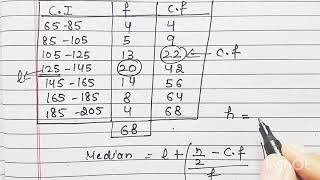 C.I f c.f
65-85 4 4
85-105 5 9
105-125 13 22 ← C.f
l 125-145 20 42
145-165 14 56
165-185 8 64
185-205 4 68
68
h =
Median = l + ( n/2 - C.f / f